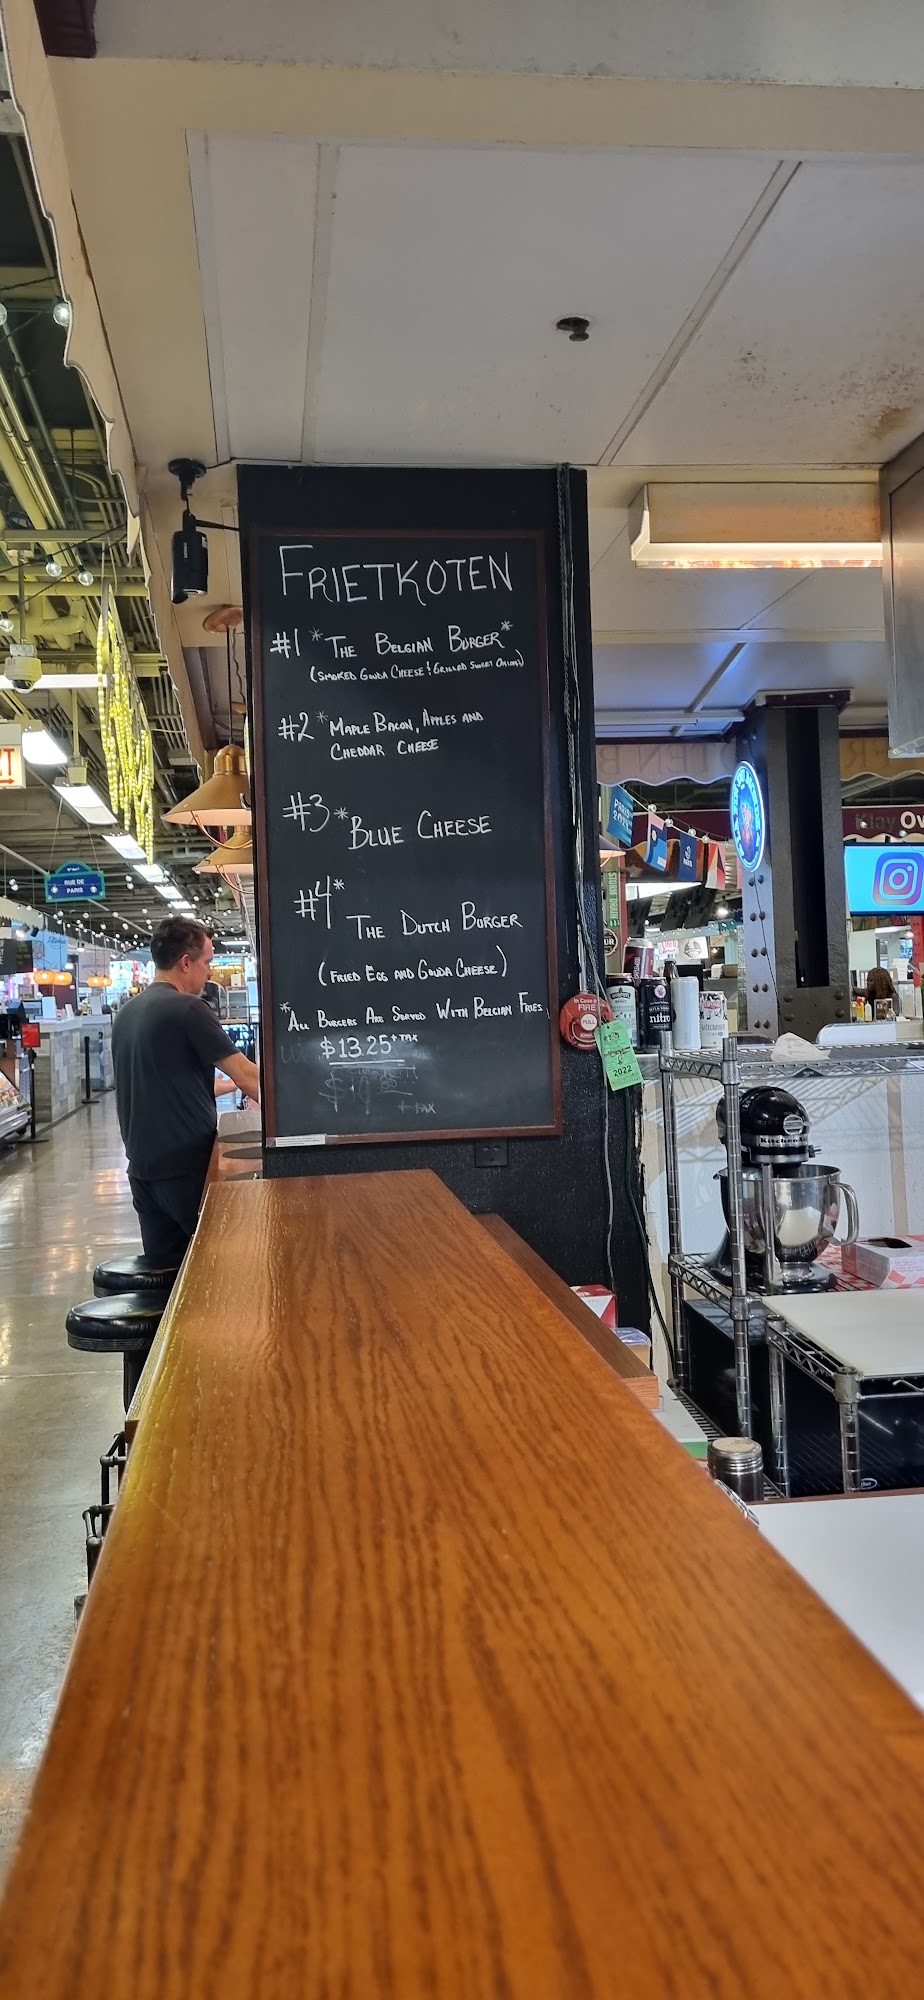 FRIETKOTEN
#1 * THE BELGIAN BURGER*
(SMOKED GOUDA CHEESE & GRILLED SWEET ONIONS)
#2 * MAPLE BACON, APPLES AND
CHEDDAR CHEESE
#3 * BLUE CHEESE
#4*
THE DUTCH BURGER
(FRIED EGG AND GOUDA CHEESE)
*ALL BURGERS ARE SERVED WITH BELGIAN FRIES
$13.25 + TAX
+ TAX
RUE DE
PARIS
In Case of
FIRE
PULL
2022
nitro
KitchenAid
Klay Ov
STORM DRAIN